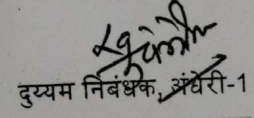 दुय्यम निबंधक, अंधेरी-1